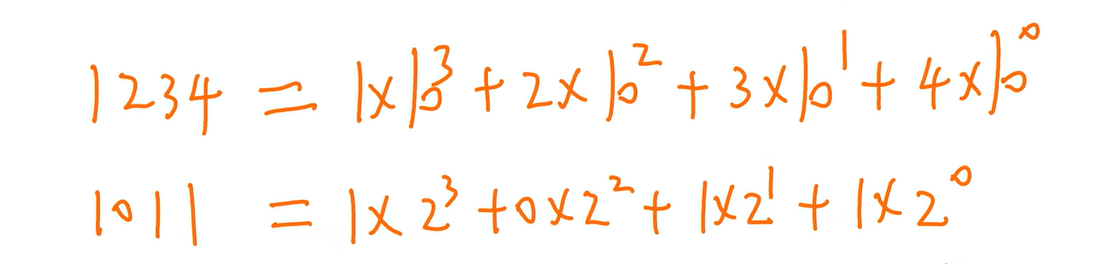 1234 = 1×10³ + 2×10² + 3×10¹ + 4×10⁰
1011 = 1×2³ + 0×2² + 1×2¹ + 1×2⁰